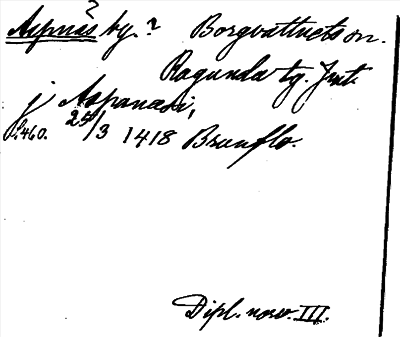 Aspnäs by.? Borgvattnets sn.
Ragunda tg. Jmt.
j Aspanæsi,
s. 460. 25/3 1418 Brunflo.
Dipl. norv. III.